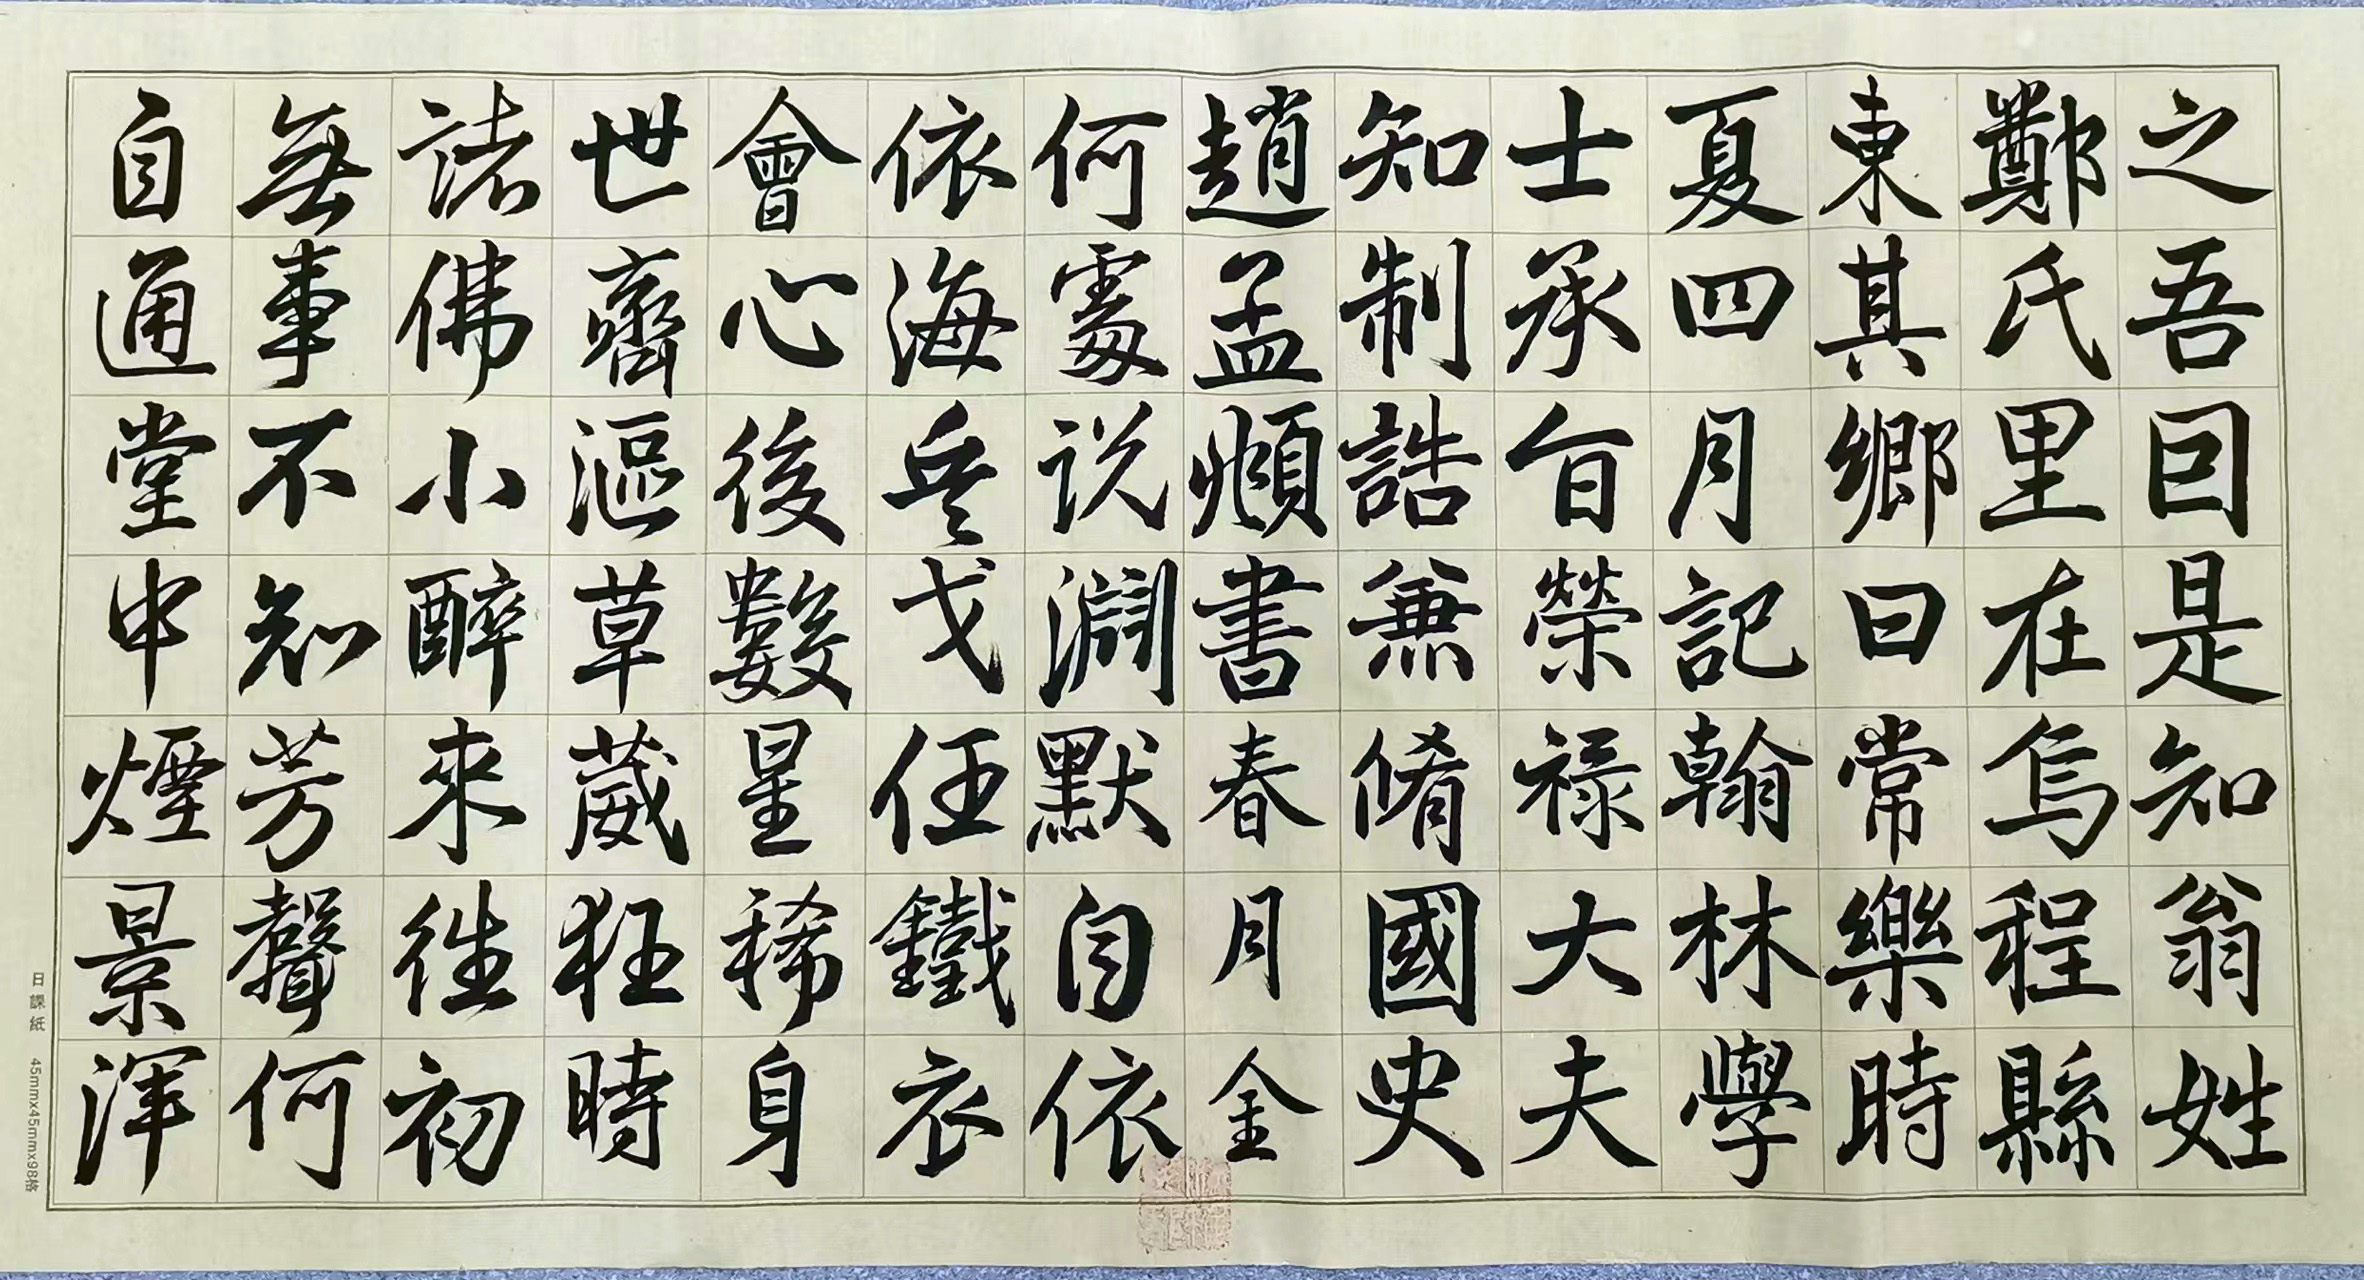 之吾囙是知翁姓
鄭氏里在烏程縣
東其鄉曰常樂時
夏四月記翰林學
士承旨榮禄大夫
知制誥兼脩國史
趙孟頫書春月金
何處説淵默自依
依海兵戈任鐵衣
會心後數星稀身
世齊漚草葳狂時
諸佛小醉來往初
無事不知芳聲何
自通堂中煙景渾
日課紙 45mmx45mmx98格